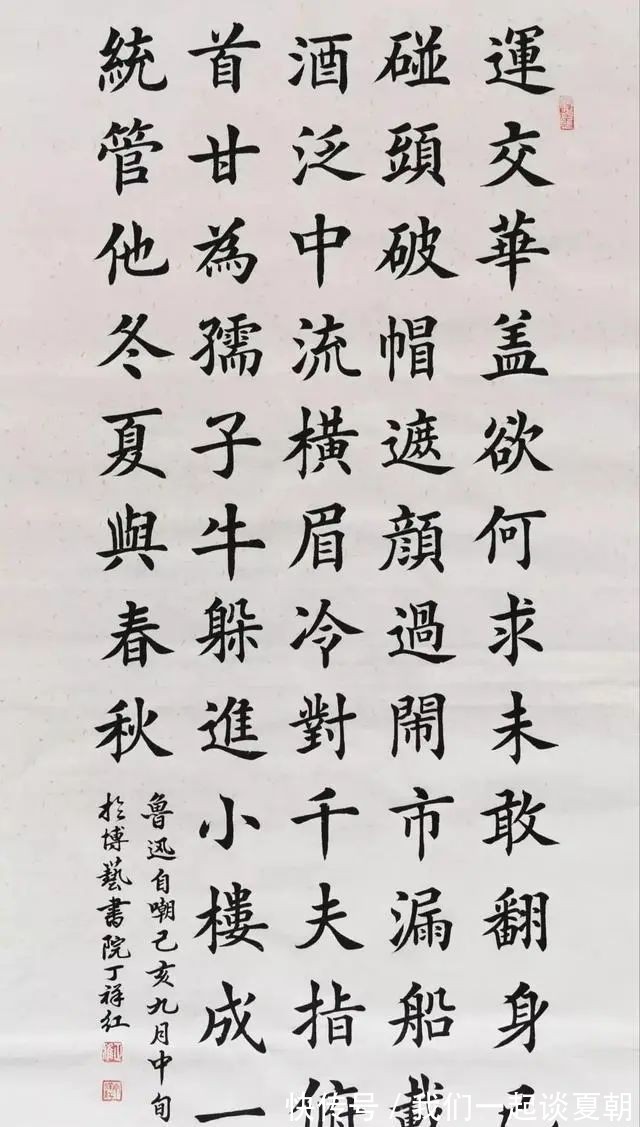 運交華盖欲何求未敢翻身已
碰頭破帽遮顔過鬧市漏船載
酒泛中流橫眉冷對千夫指俯
首甘為孺子牛躲進小樓成一
統管他冬夏與春秋
鲁迅自嘲己亥九月中旬
於博藝書院丁祥红
快传号/我们一起谈夏朝